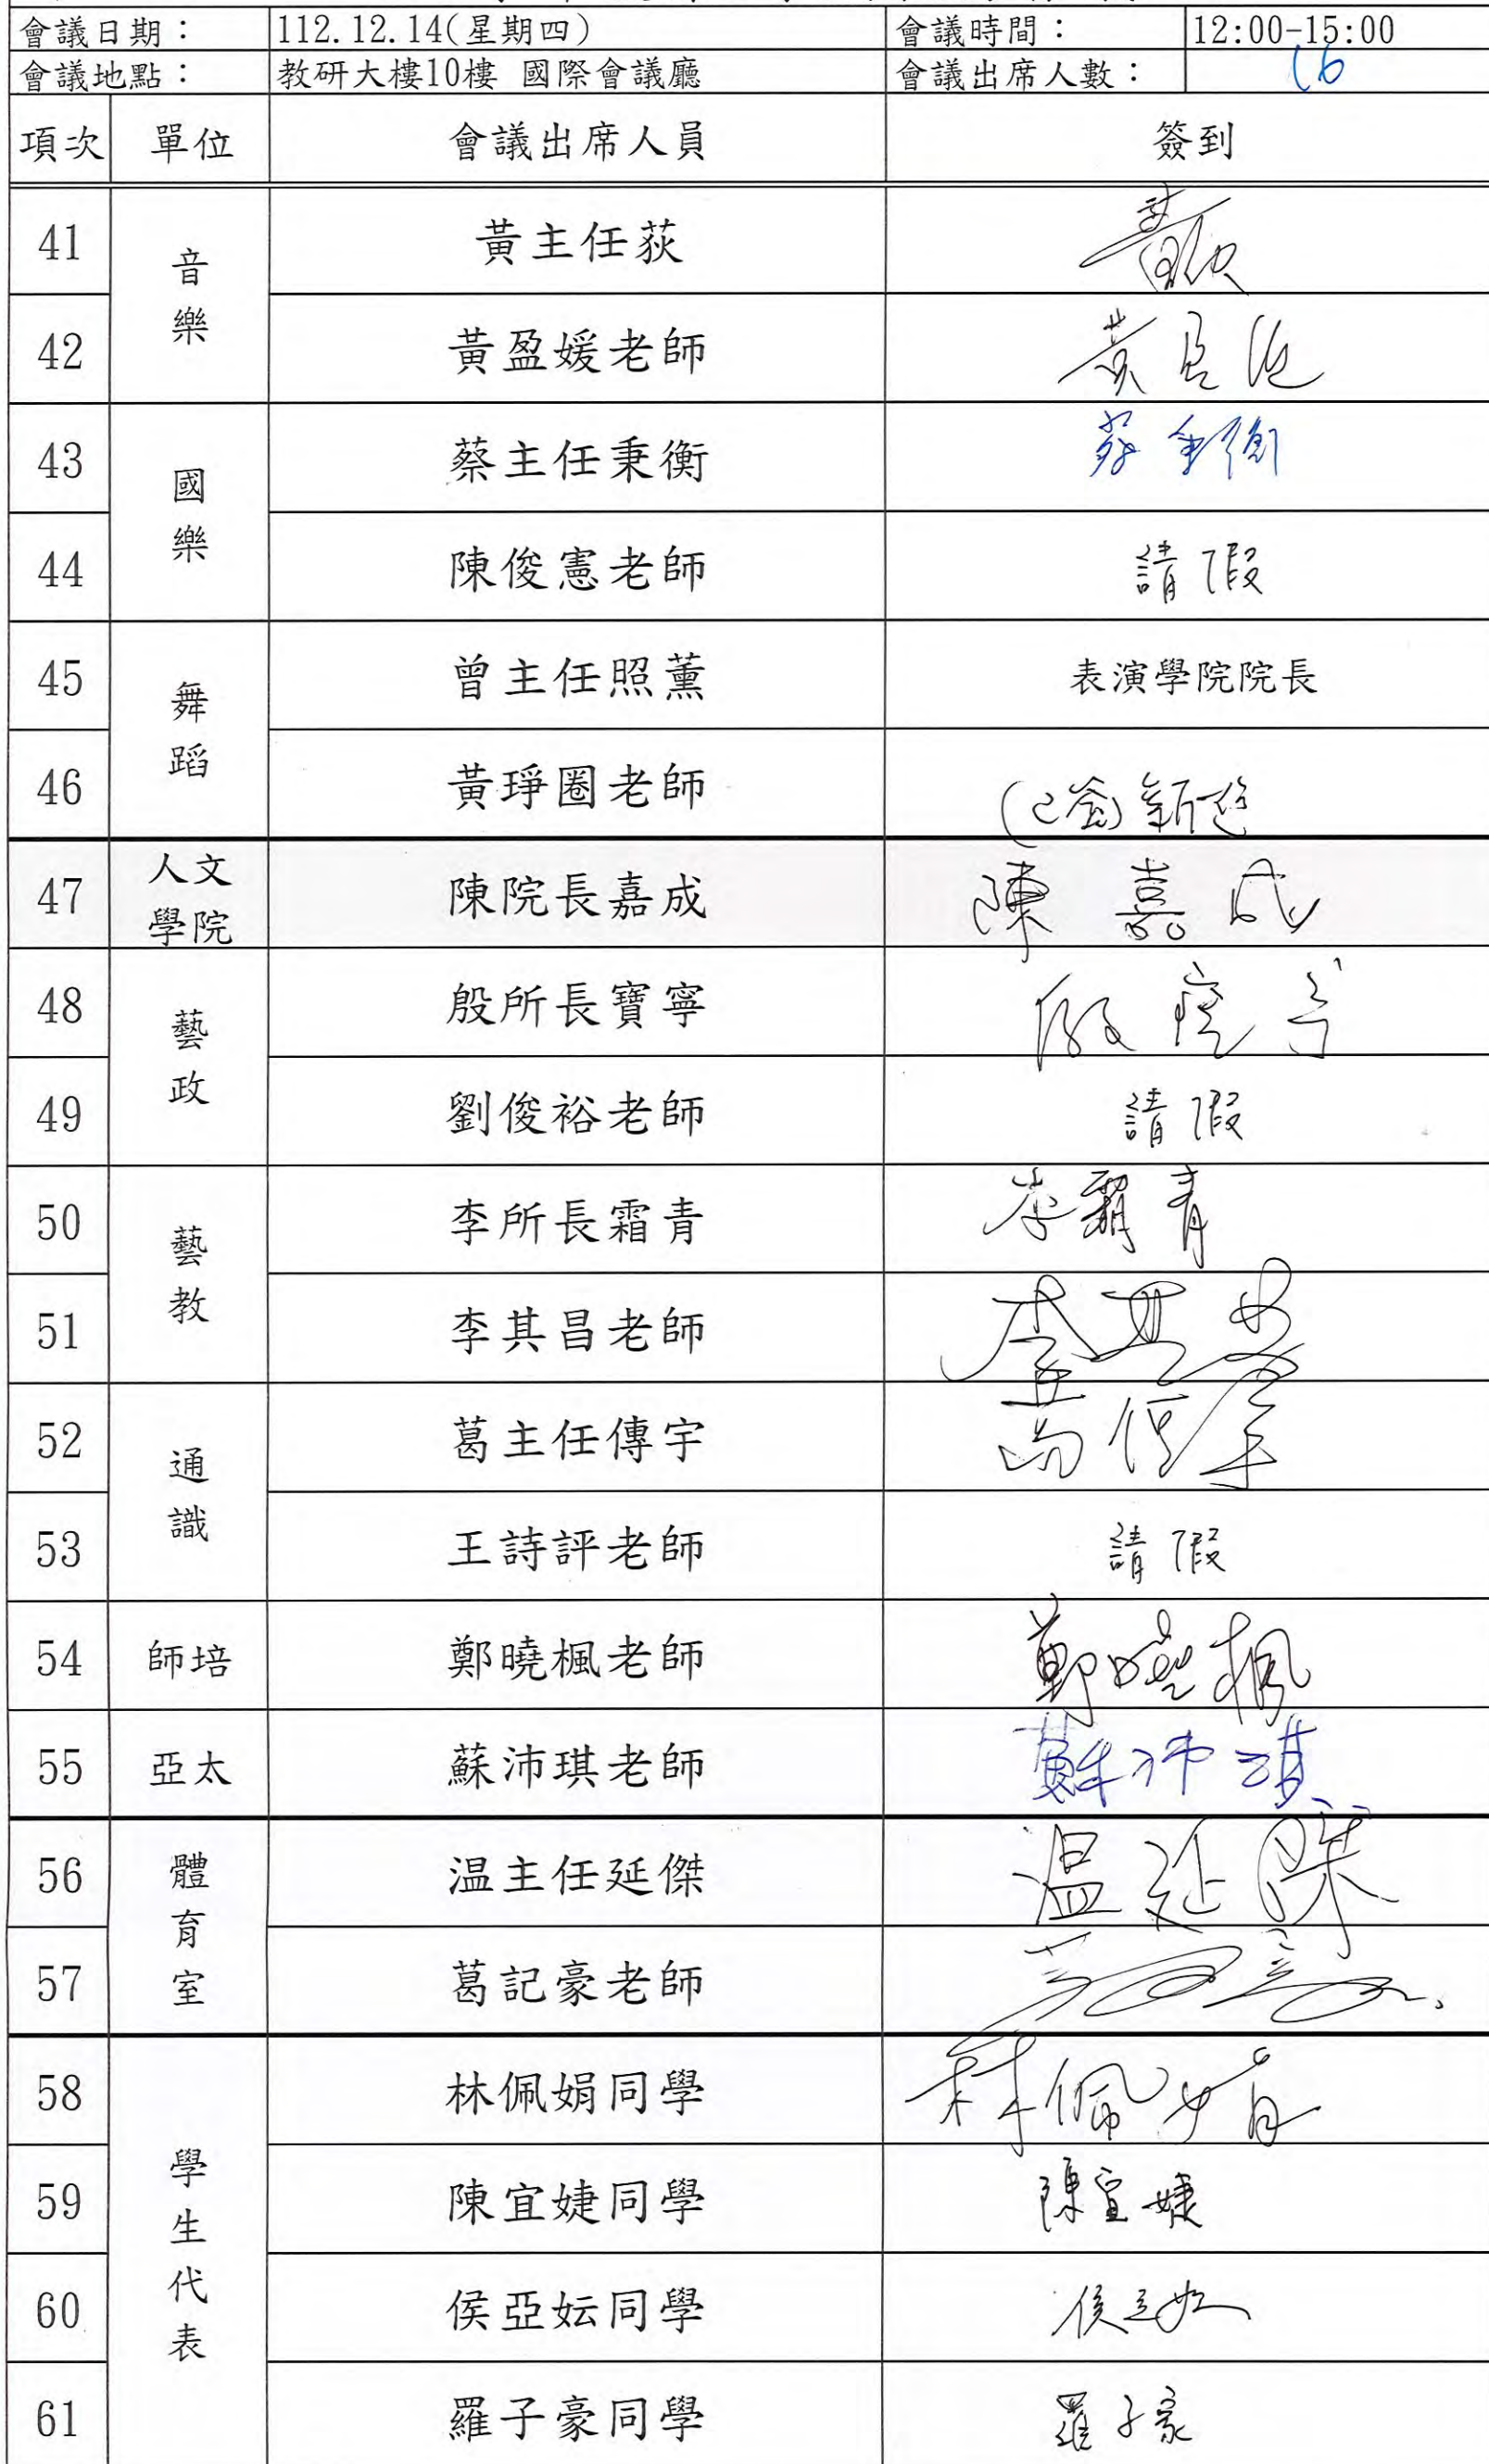 會議日期： 112.12.14(星期四) 會議時間： 12:00-15:00
會議地點： 教研大樓10樓 國際會議廳 會議出席人數： 16
項次 單位 會議出席人員 簽到
41 音樂 黃主任荻 黃荻
42 黃盈媛老師 黃盈媛
43 國樂 蔡主任秉衡 蔡秉衡
44 陳俊憲老師 請假
45 舞蹈 曾主任照薰 表演學院院長
46 黃琤圈老師
47 人文學院 陳院長嘉成 陳嘉成
48 藝政 殷所長寶寧 殷寶寧
49 劉俊裕老師 請假
50 藝教 李所長霜青 李霜青
51 李其昌老師 李其昌
52 通識 葛主任傳宇 葛傳宇
53 王詩評老師 請假
54 師培 鄭曉楓老師 鄭曉楓
55 亞太 蘇沛琪老師 蘇沛琪
56 體育室 温主任延傑 温延傑
57 葛記豪老師
58 學生代表 林佩娟同學 林佩娟
59 陳宜婕同學 陳宜婕
60 侯亞妘同學 侯亞妘
61 羅子豪同學 羅子豪